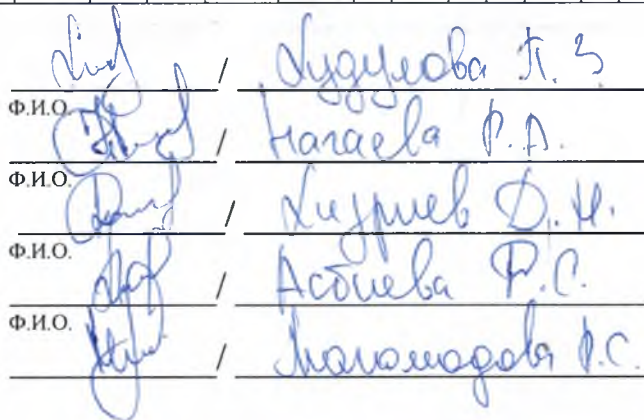 / Худулова П. З
Ф.И.О.
/ Нагаева Р. А.
Ф.И.О.
/ Хизриев Д. Н.
Ф.И.О.
/ Асбиева Р. С.
Ф.И.О.
/ Магомадова Р. С.